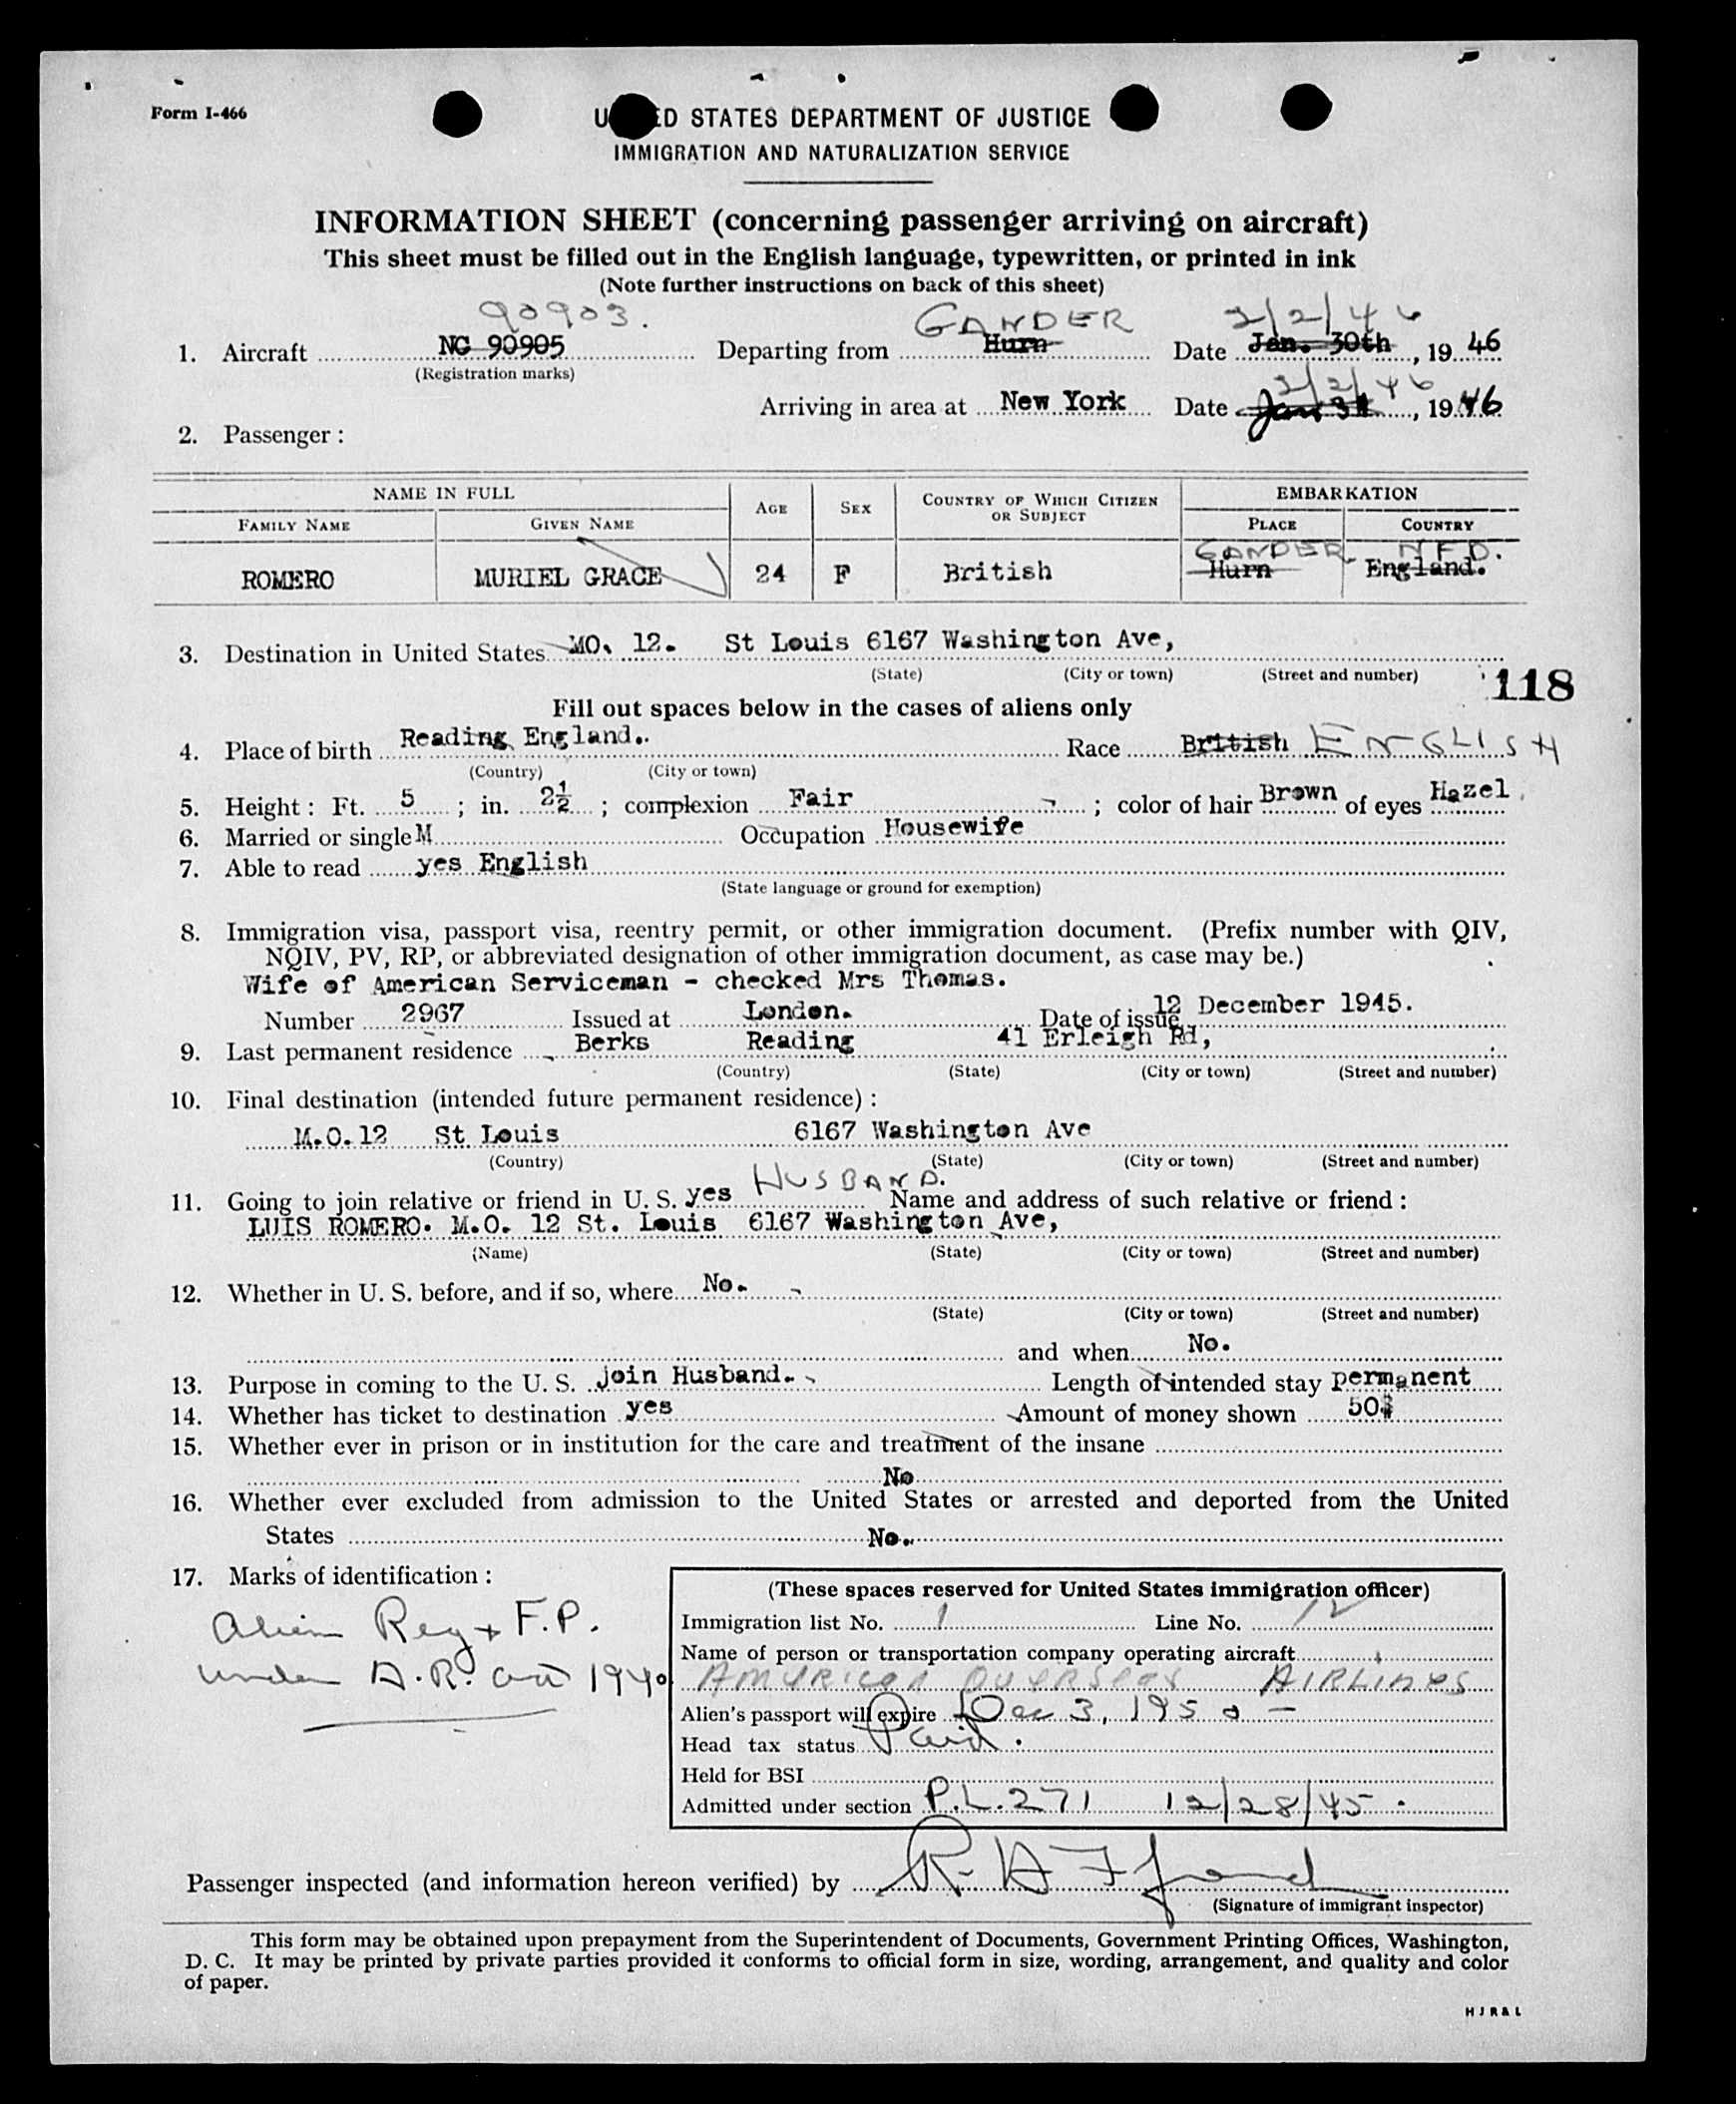 Form I-466
UNITED STATES DEPARTMENT OF JUSTICE
IMMIGRATION AND NATURALIZATION SERVICE
INFORMATION SHEET (concerning passenger arriving on aircraft)
This sheet must be filled out in the English language, typewritten, or printed in ink
(Note further instructions on back of this sheet)
90903. GANDER 2/2/46
1. Aircraft NC 90905 Departing from Hurn Date Jan. 30th, 19 46
(Registration marks) 2/2/46
Arriving in area at New York Date Jan 31, 19 46
2. Passenger :
NAME IN FULL AGE SEX COUNTRY OF WHICH CITIZEN OR SUBJECT EMBARKATION
FAMILY NAME GIVEN NAME PLACE COUNTRY
GANDER N.F.D.
ROMERO MURIEL GRACE 24 F British Hurn England.
3. Destination in United States MO. 12. St Louis 6167 Washington Ave,
(State) (City or town) (Street and number)
118
Fill out spaces below in the cases of aliens only
4. Place of birth Reading England. Race British ENGLISH
(Country) (City or town)
5. Height : Ft. 5 ; in. 2½ ; complexion Fair ; color of hair Brown of eyes Hazel
6. Married or single M Occupation Housewife
7. Able to read yes English
(State language or ground for exemption)
8. Immigration visa, passport visa, reentry permit, or other immigration document. (Prefix number with QIV,
NQIV, PV, RP, or abbreviated designation of other immigration document, as case may be.)
Wife of American Serviceman - checked Mrs Thomas.
Number 2967 Issued at London. Date of issue 12 December 1945.
9. Last permanent residence Berks Reading 41 Erleigh Rd,
(Country) (State) (City or town) (Street and number)
10. Final destination (intended future permanent residence) :
M.O. 12 St Louis 6167 Washington Ave
(Country) (State) (City or town) (Street and number)
HUSBAND.
11. Going to join relative or friend in U. S. yes Name and address of such relative or friend :
LUIS ROMERO. M.O. 12 St. Louis 6167 Washington Ave,
(Name) (State) (City or town) (Street and number)
12. Whether in U. S. before, and if so, where No.
(State) (City or town) (Street and number)
and when No.
13. Purpose in coming to the U. S. join Husband. Length of intended stay permanent
14. Whether has ticket to destination yes Amount of money shown 50$
15. Whether ever in prison or in institution for the care and treatment of the insane
No
16. Whether ever excluded from admission to the United States or arrested and deported from the United
States No.
17. Marks of identification :
Alien Reg + F.P.
under A.R. act 1940
(These spaces reserved for United States immigration officer)
Immigration list No. 1 Line No. 12
Name of person or transportation company operating aircraft
AMERICAN OVERSEAS AIRLINES
Alien's passport will expire Dec 3, 1950 -
Head tax status Paid.
Held for BSI
Admitted under section P.L. 271 12/28/45.
Passenger inspected (and information hereon verified) by
(Signature of immigrant inspector)
This form may be obtained upon prepayment from the Superintendent of Documents, Government Printing Offices, Washington,
D. C. It may be printed by private parties provided it conforms to official form in size, wording, arrangement, and quality and color
of paper.
H J R & L